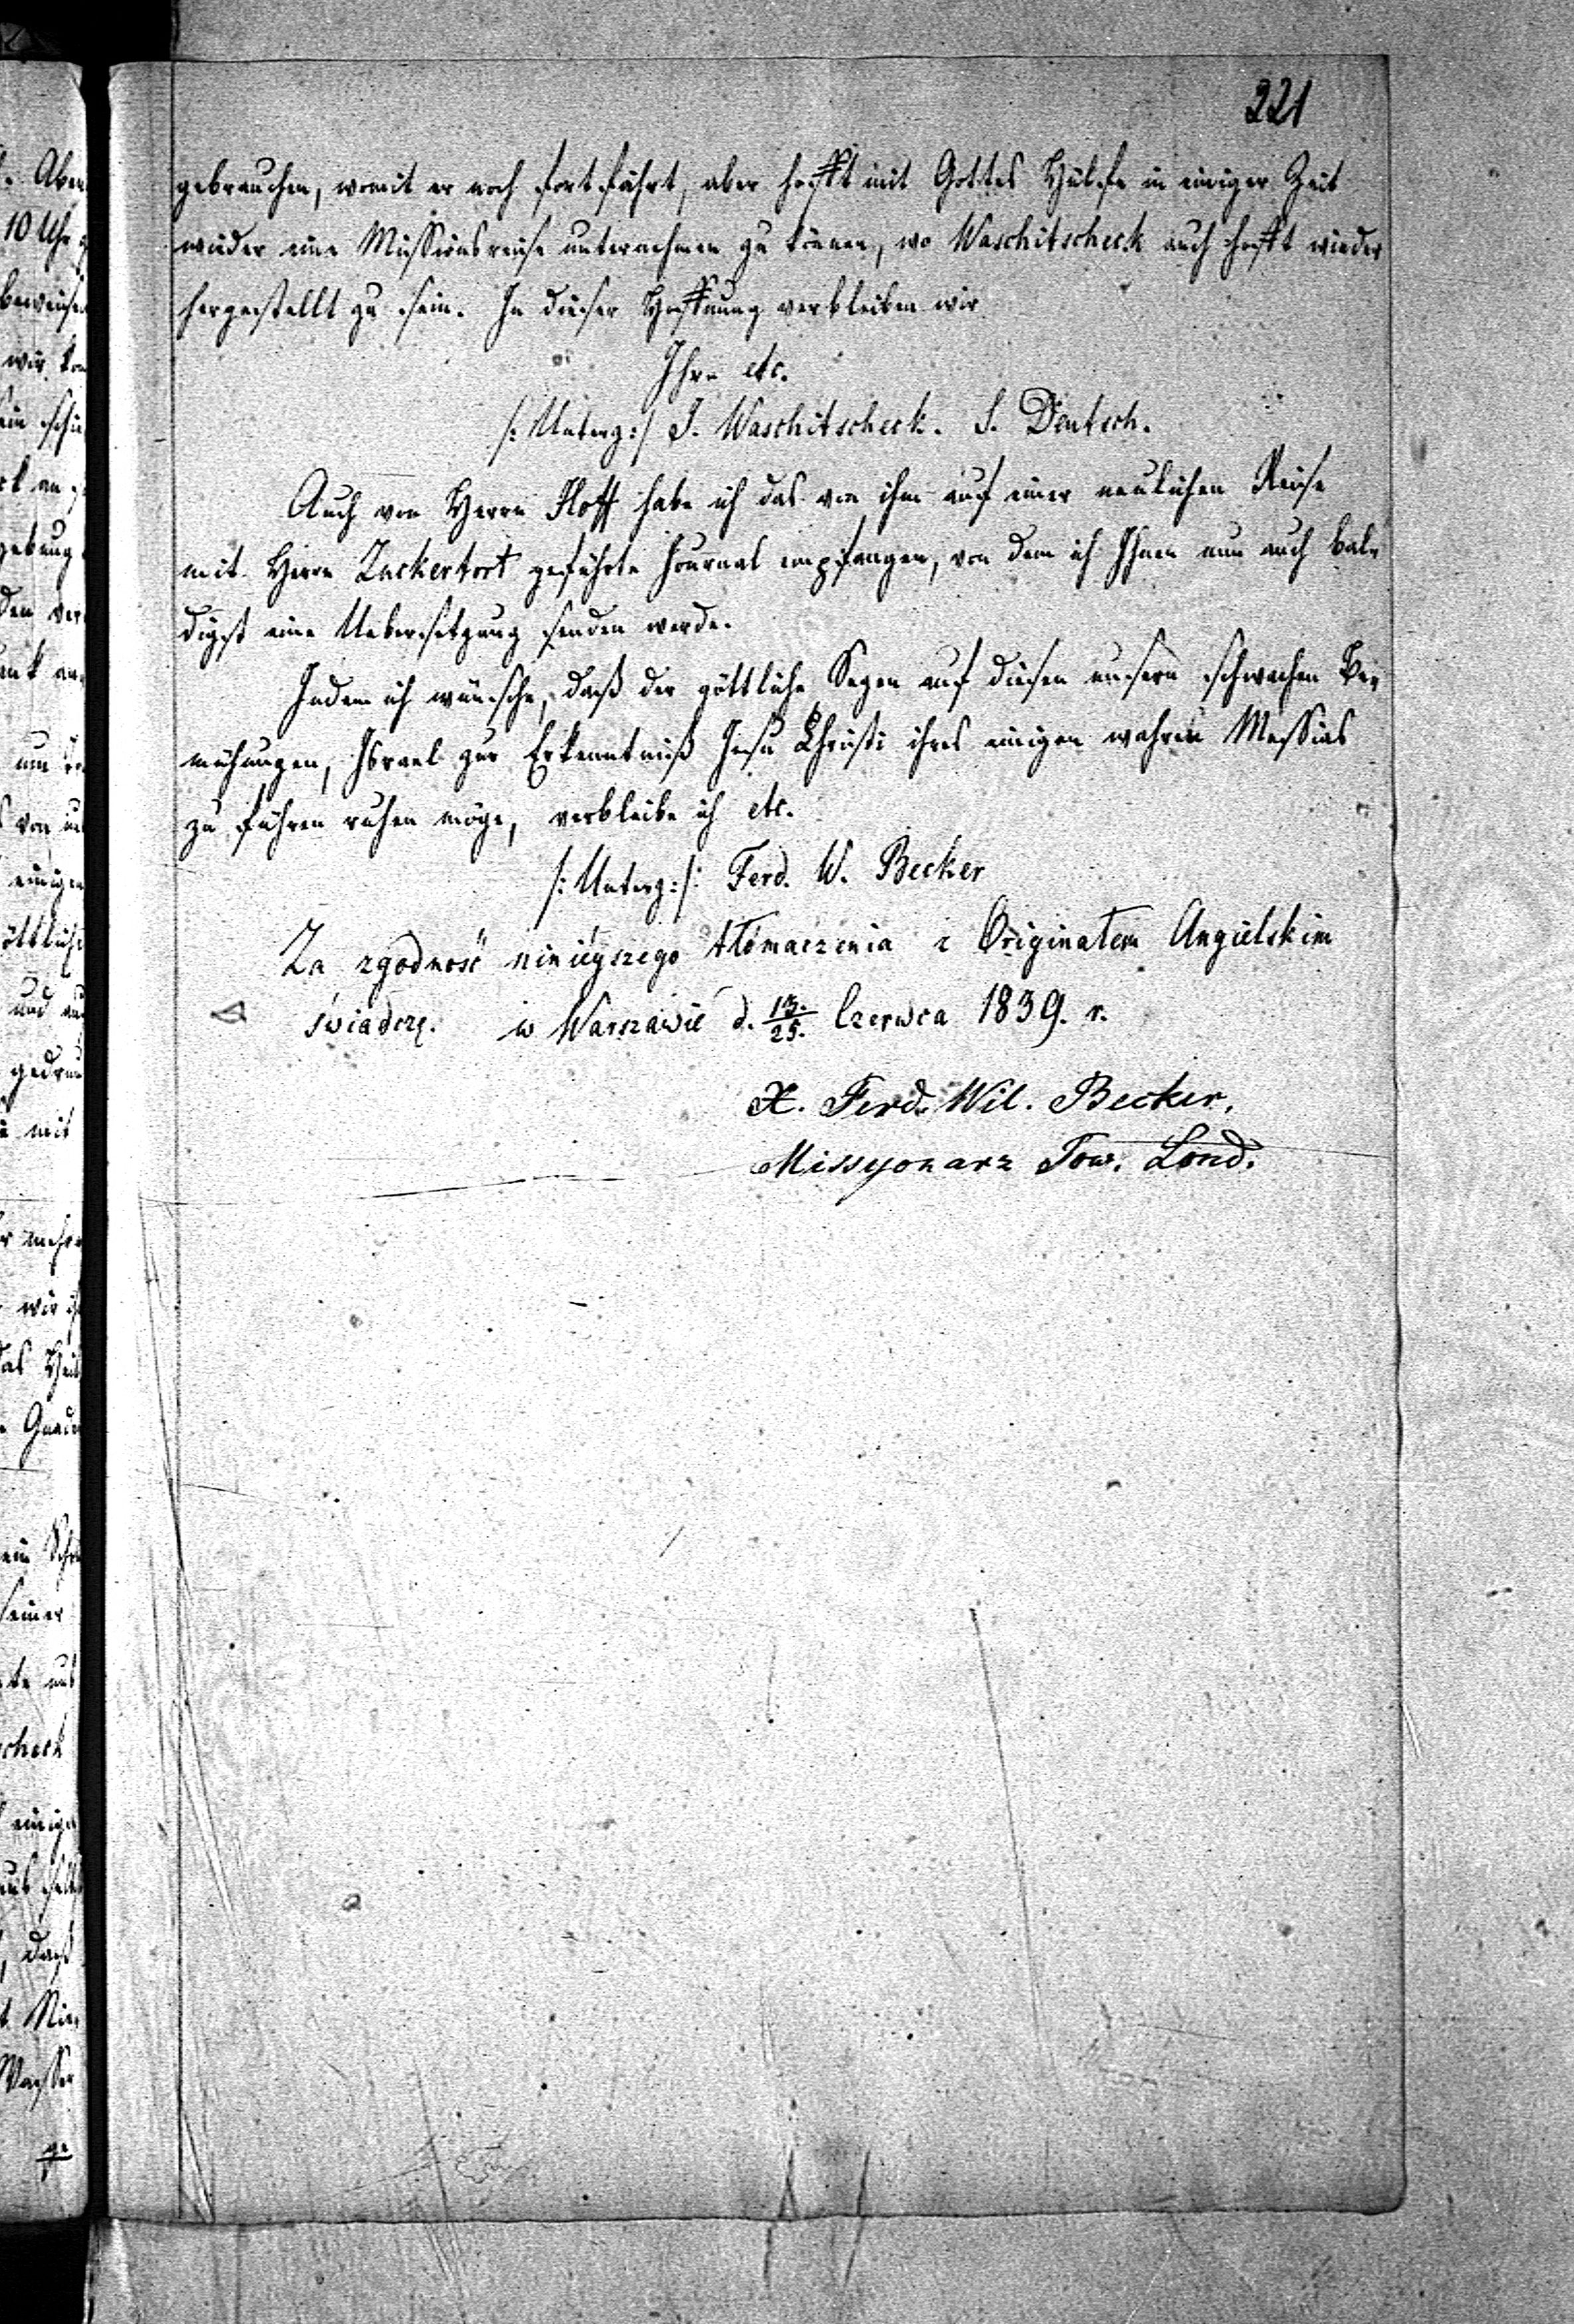 221
gebrauchen, womit er noch fortfährt, aber hofft mit Gottes Hülfe in einiger Zeit
wieder eine Missionsreise unternehmen zu können, wo Waschitscheck auch hofft wieder
hergestellt zu sein. In dieser Hoffnung verbleiben wir
Ihre etc.
/: Unterz:/ J. Waschitscheck. S. Deutsch.
Auch von Herrn Hoff habe ich das von ihm auf einer neulichen Reise
mit Herrn Zuckertort geführte Journal empfangen, von dem ich Ihnen nun auch bal-
digst eine Uebersetzung senden werde.
Indem ich wünsche, daß der göttliche Segen auf diesen unsern schwachen Be-
mühungen, Israel zur Erkenntniß Jesu Christi ihres einigen wahren Messias
zu führen ruhen möge, verbleibe ich etc.
/: Unterz:/: Ferd. W. Becker
Za zgodność ninieyszego tłómaczenia z Originałem Angielskim
świadczę. w Warszawie d. 13./25. Czerwca 1839. r.
X. Ferd. Wil. Becker,
Missyonarz Tow. Lond.